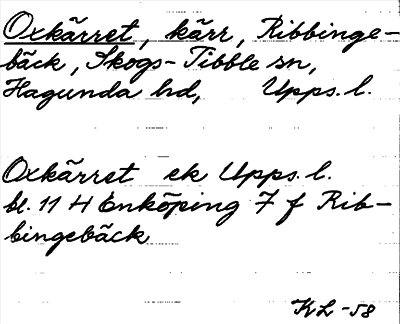 Oxkärret, kärr, Ribbinge-
bäck, Skogs-Tibble sn,
Hagunda hd, Upps. l.
Oxkärret ek Upps. l.
bl. 11 H Enköping 7 f Rib-
bingebäck
KL -58